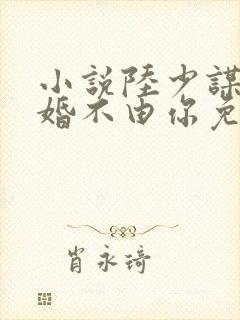 小說陸少謀
婚不由你免
肖永琦